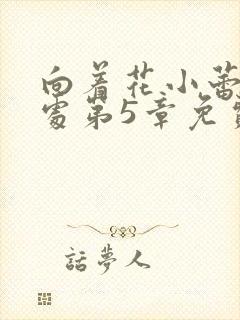 向着花小蕾
处第5章免费
話夢人